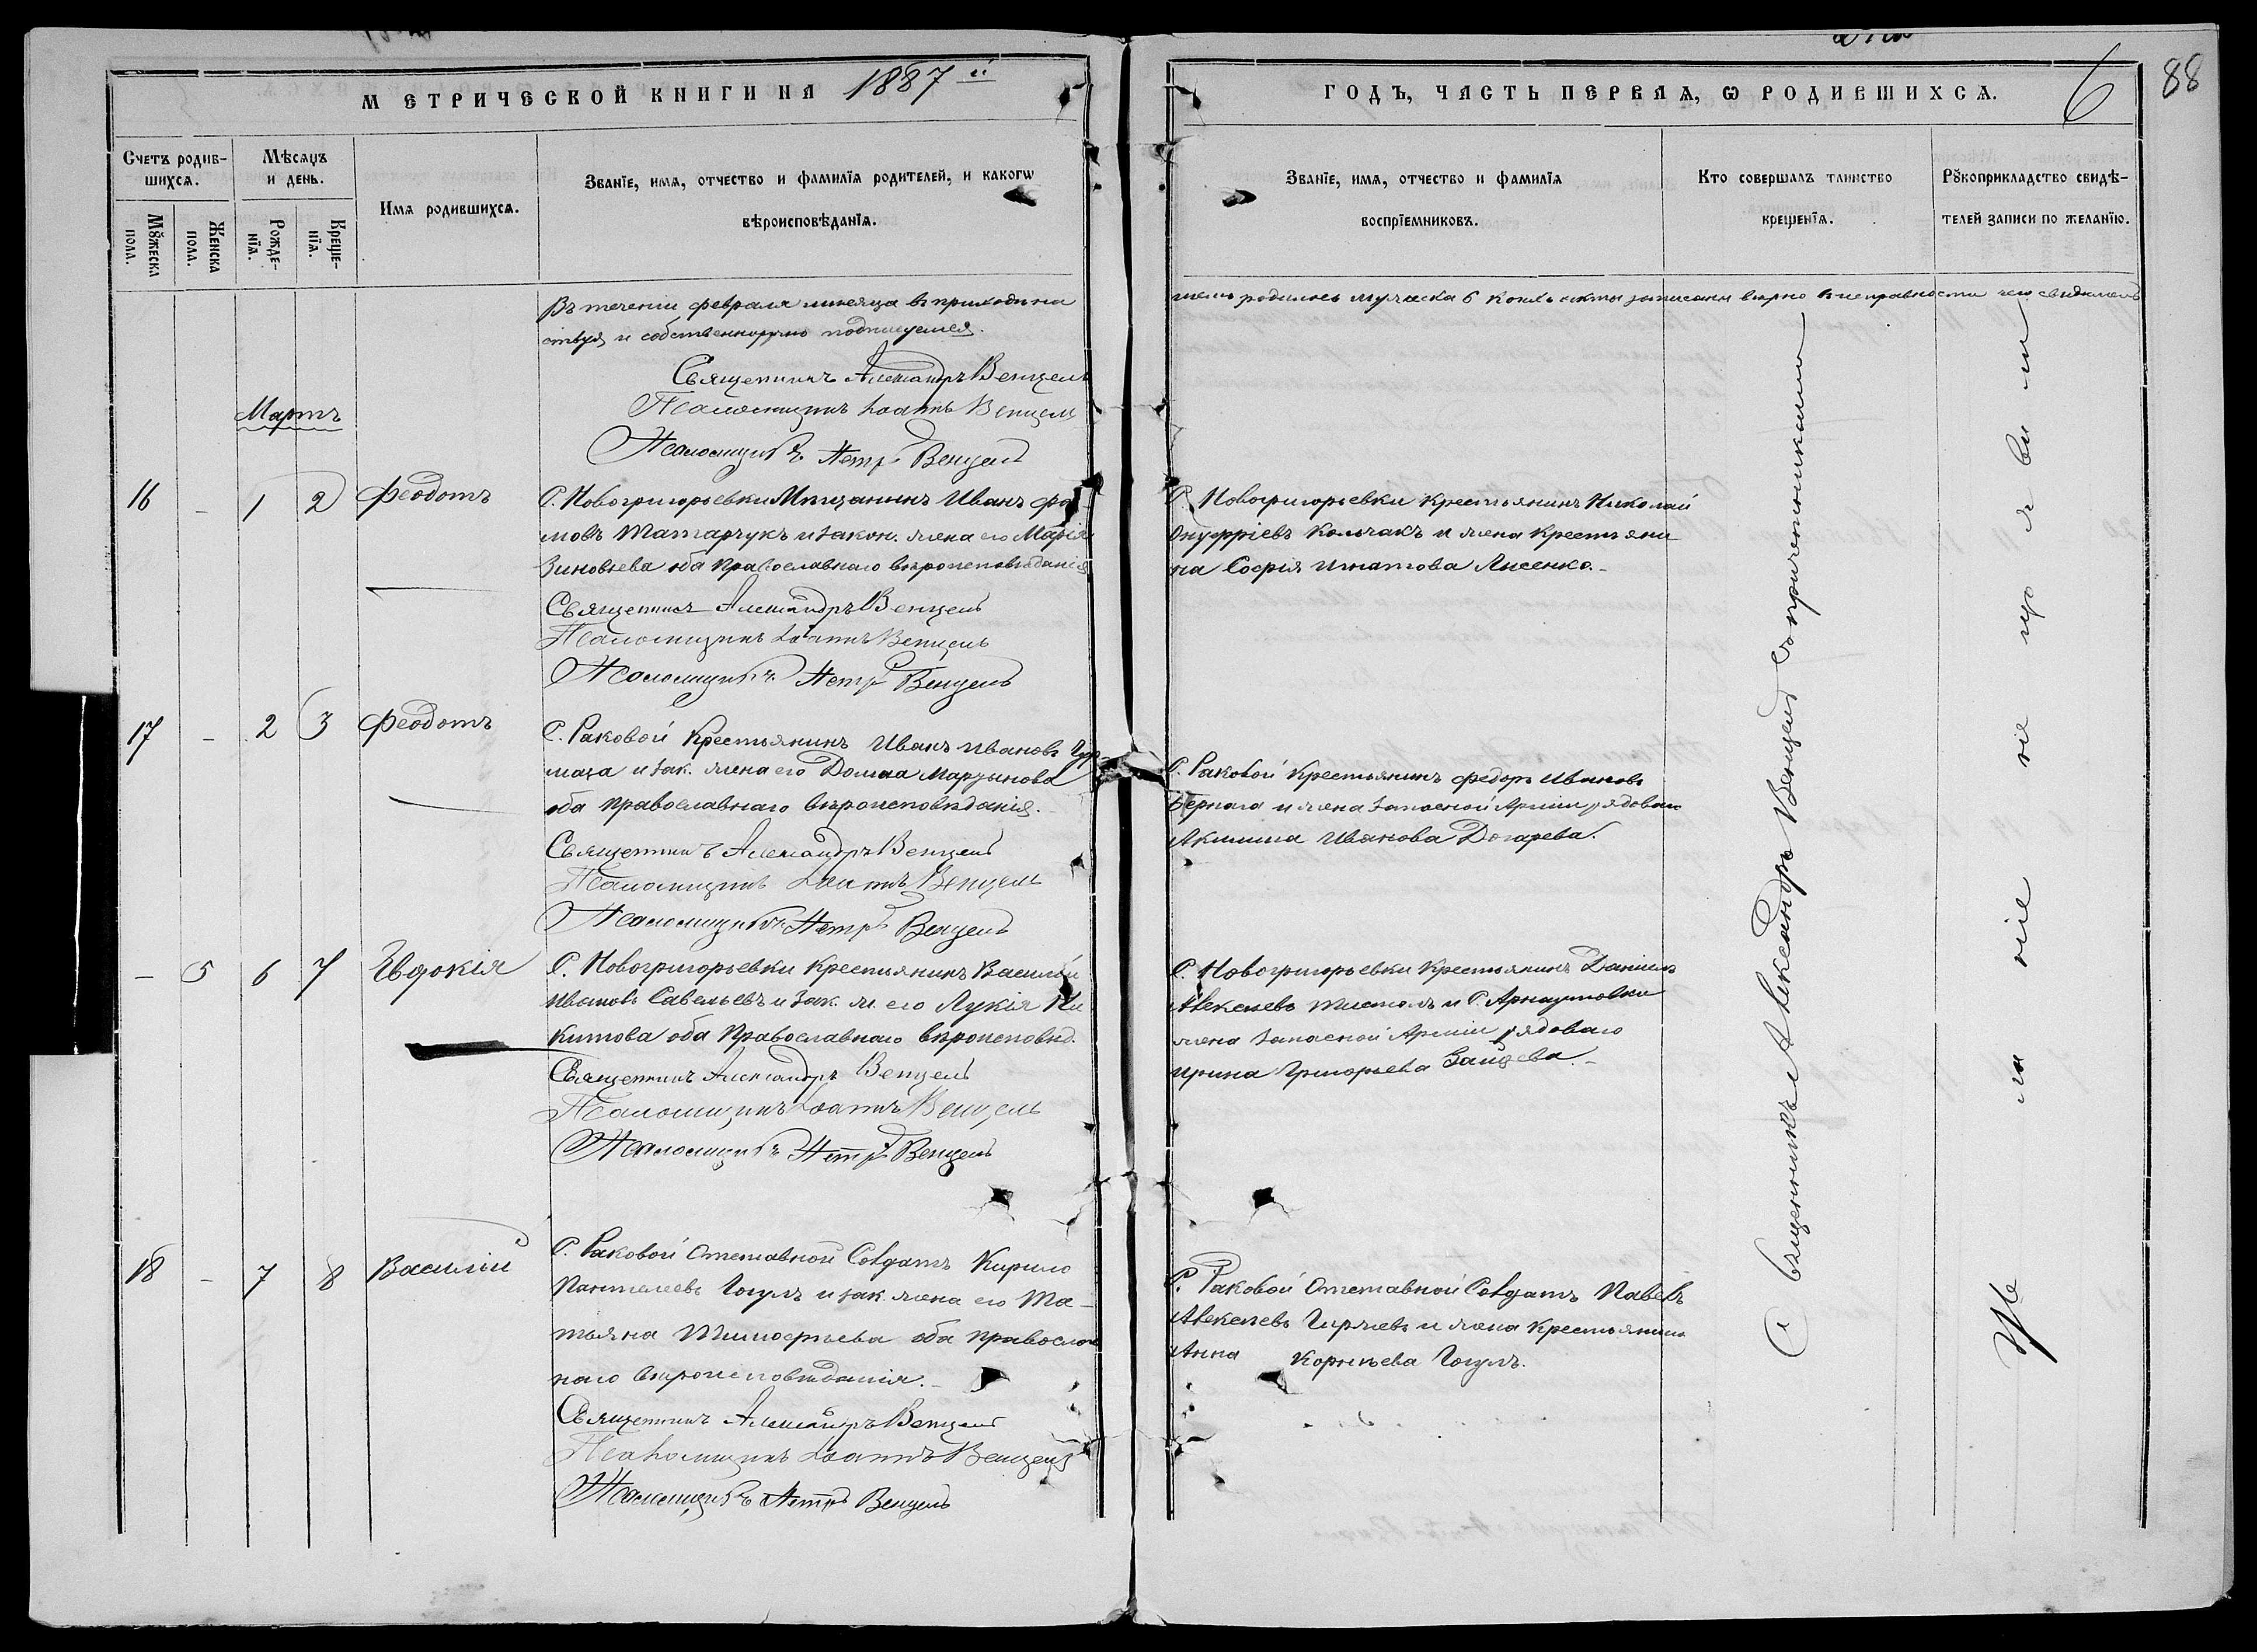 МЕТРИЧЕСКОЙ КНИГИ НА 1887 й
ГОДЪ, ЧАСТЬ ПЕРВАЯ, Ѡ РОДИВШИХСѦ.
6
88
Счетъ родив-
шихсѧ.
Мѣсѧцъ
и день.
Имѧ родившихсѧ.
Званїе, имѧ, отчество и фамилїѧ родителей, и какогѡ
вѣроисповѣданїѧ.
Мꙋжеска
пола.
Женска
пола.
Рожде-
нїѧ.
Креще-
нїѧ.
Званїе, имѧ, отчество и фамилїѧ
воспрїемниковъ.
Кто совершалъ таинство
крещенїѧ.
Рꙋкоприкладство свидѣ-
телей записи по желанїю.
Въ течении февраля месяца въ приходѣ на
шемъ родилось муческа 6 коихъ акты записаны вѣрно
ствуя и собственноручно подписуемся.
Священникъ Александръ Венцель
Псаломщикъ Іоаннъ Венцель
Псаломщикъ Петръ Венцель
Мартъ
16 - 1 2 Феодотъ
С. Новогригорьевки Мѣщанинъ Иванъ Фо-
мовъ Татарчукъ и закон. жена его Марія
Зиновьева оба Православнаго вѣроисповѣданія
Священникъ Александръ Венцель
Псаломщикъ Іоаннъ Венцель
Псаломщикъ Петръ Венцель
С. Новогригорьевки Крестьянинъ Николай
Онуфріевъ Колчакъ и жена крестьяни
на Софія Игнатова Лисенко.-
17 - 2 3 Феодотъ
С. Раковой Крестьянинъ Иванъ Ивановъ
и зак. жена его Домна Мартынова
оба православнаго вѣроисповѣданія.
Священникъ Александръ Венцель
Псаломщикъ Іоаннъ Венцель
Псаломщикъ Петръ Венцель
С. Раковой Крестьянинъ Федоръ Ивановъ
и жена запасной Арміи рядоваго
Акилина Иванова Догарева.
- 5 6 7 Евдокія
С. Новогригорьевки Крестьянинъ Василій
Ивановъ Савельевъ и зак. ж. его Лукія Ни
китова оба Православнаго вѣроисповѣд.
Священникъ Александръ Венцель
Псаломщикъ Іоаннъ Венцель
Псаломщикъ Петръ Венцель
С. Новогригорьевки Крестьянинъ Даніилъ
Алексѣевъ и С. Арнаутовки
жена запасной Арміи рядоваго
Ирина Григорьева Зайцева.-
18 - 7 8 Василій
С. Раковой Отставной Солдатъ Кирило
Пантелеевъ Гогулъ и зак. жена его Та-
тьяна Тимофѣева оба православ
наго вѣроисповѣданія.-
Священникъ Александръ Венцель
Псаломщикъ Іоаннъ Венцель
Псаломщикъ Петръ Венцель
С. Раковой Отставной Солдатъ Павелъ
Алексѣевъ и жена Крестьянина
Анна Корнѣева Гогулъ.
Священникъ Александръ Венцель съ причетниками